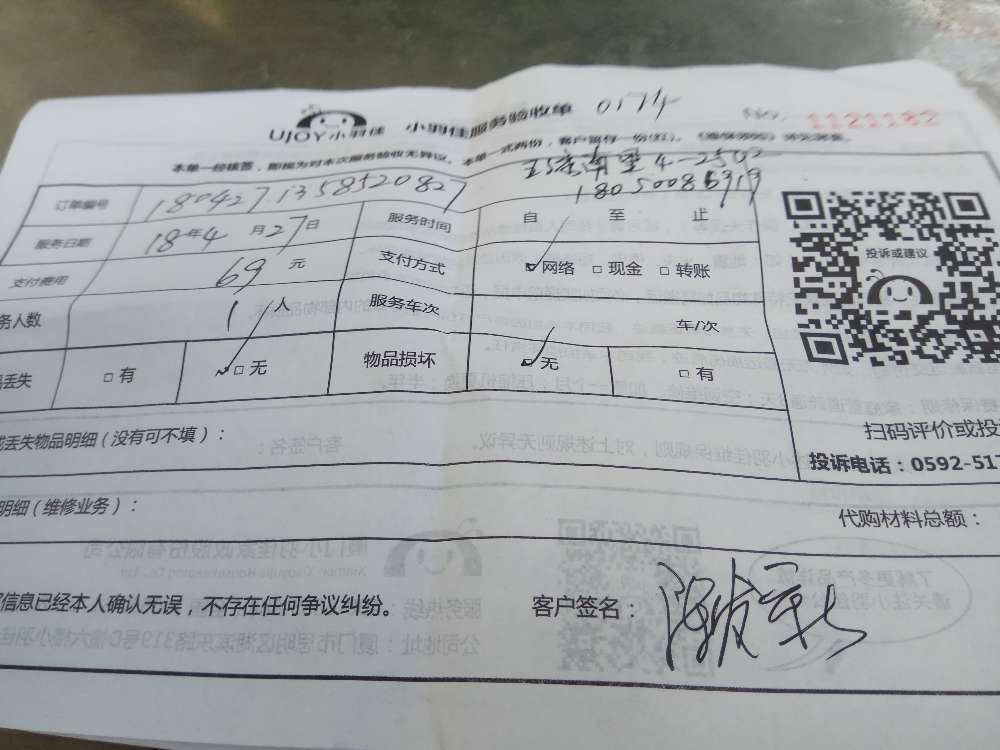 UJOY小羽佳 小羽佳服务验收单 0174 No. 1121182
本单一经接签，即视为对本次服务验收无异议。本单一式两份，客户留存一份(红)。
4-2502
订单编号 180427.1358520827 18050086919
服务日期 18年4月27日 服务时间 自 至 止
支付费用 69元 支付方式 网络 现金 转账
务人数 1人 服务车次 车/次
丢失 有 无 物品损坏 无 有
投诉或建议
扫码评价或投
丢失物品明细（没有可不填）：
投诉电话：0592-517
明细（维修业务）：
代购材料总额：
信息已经本人确认无误，不存在任何争议纠纷。 客户签名：